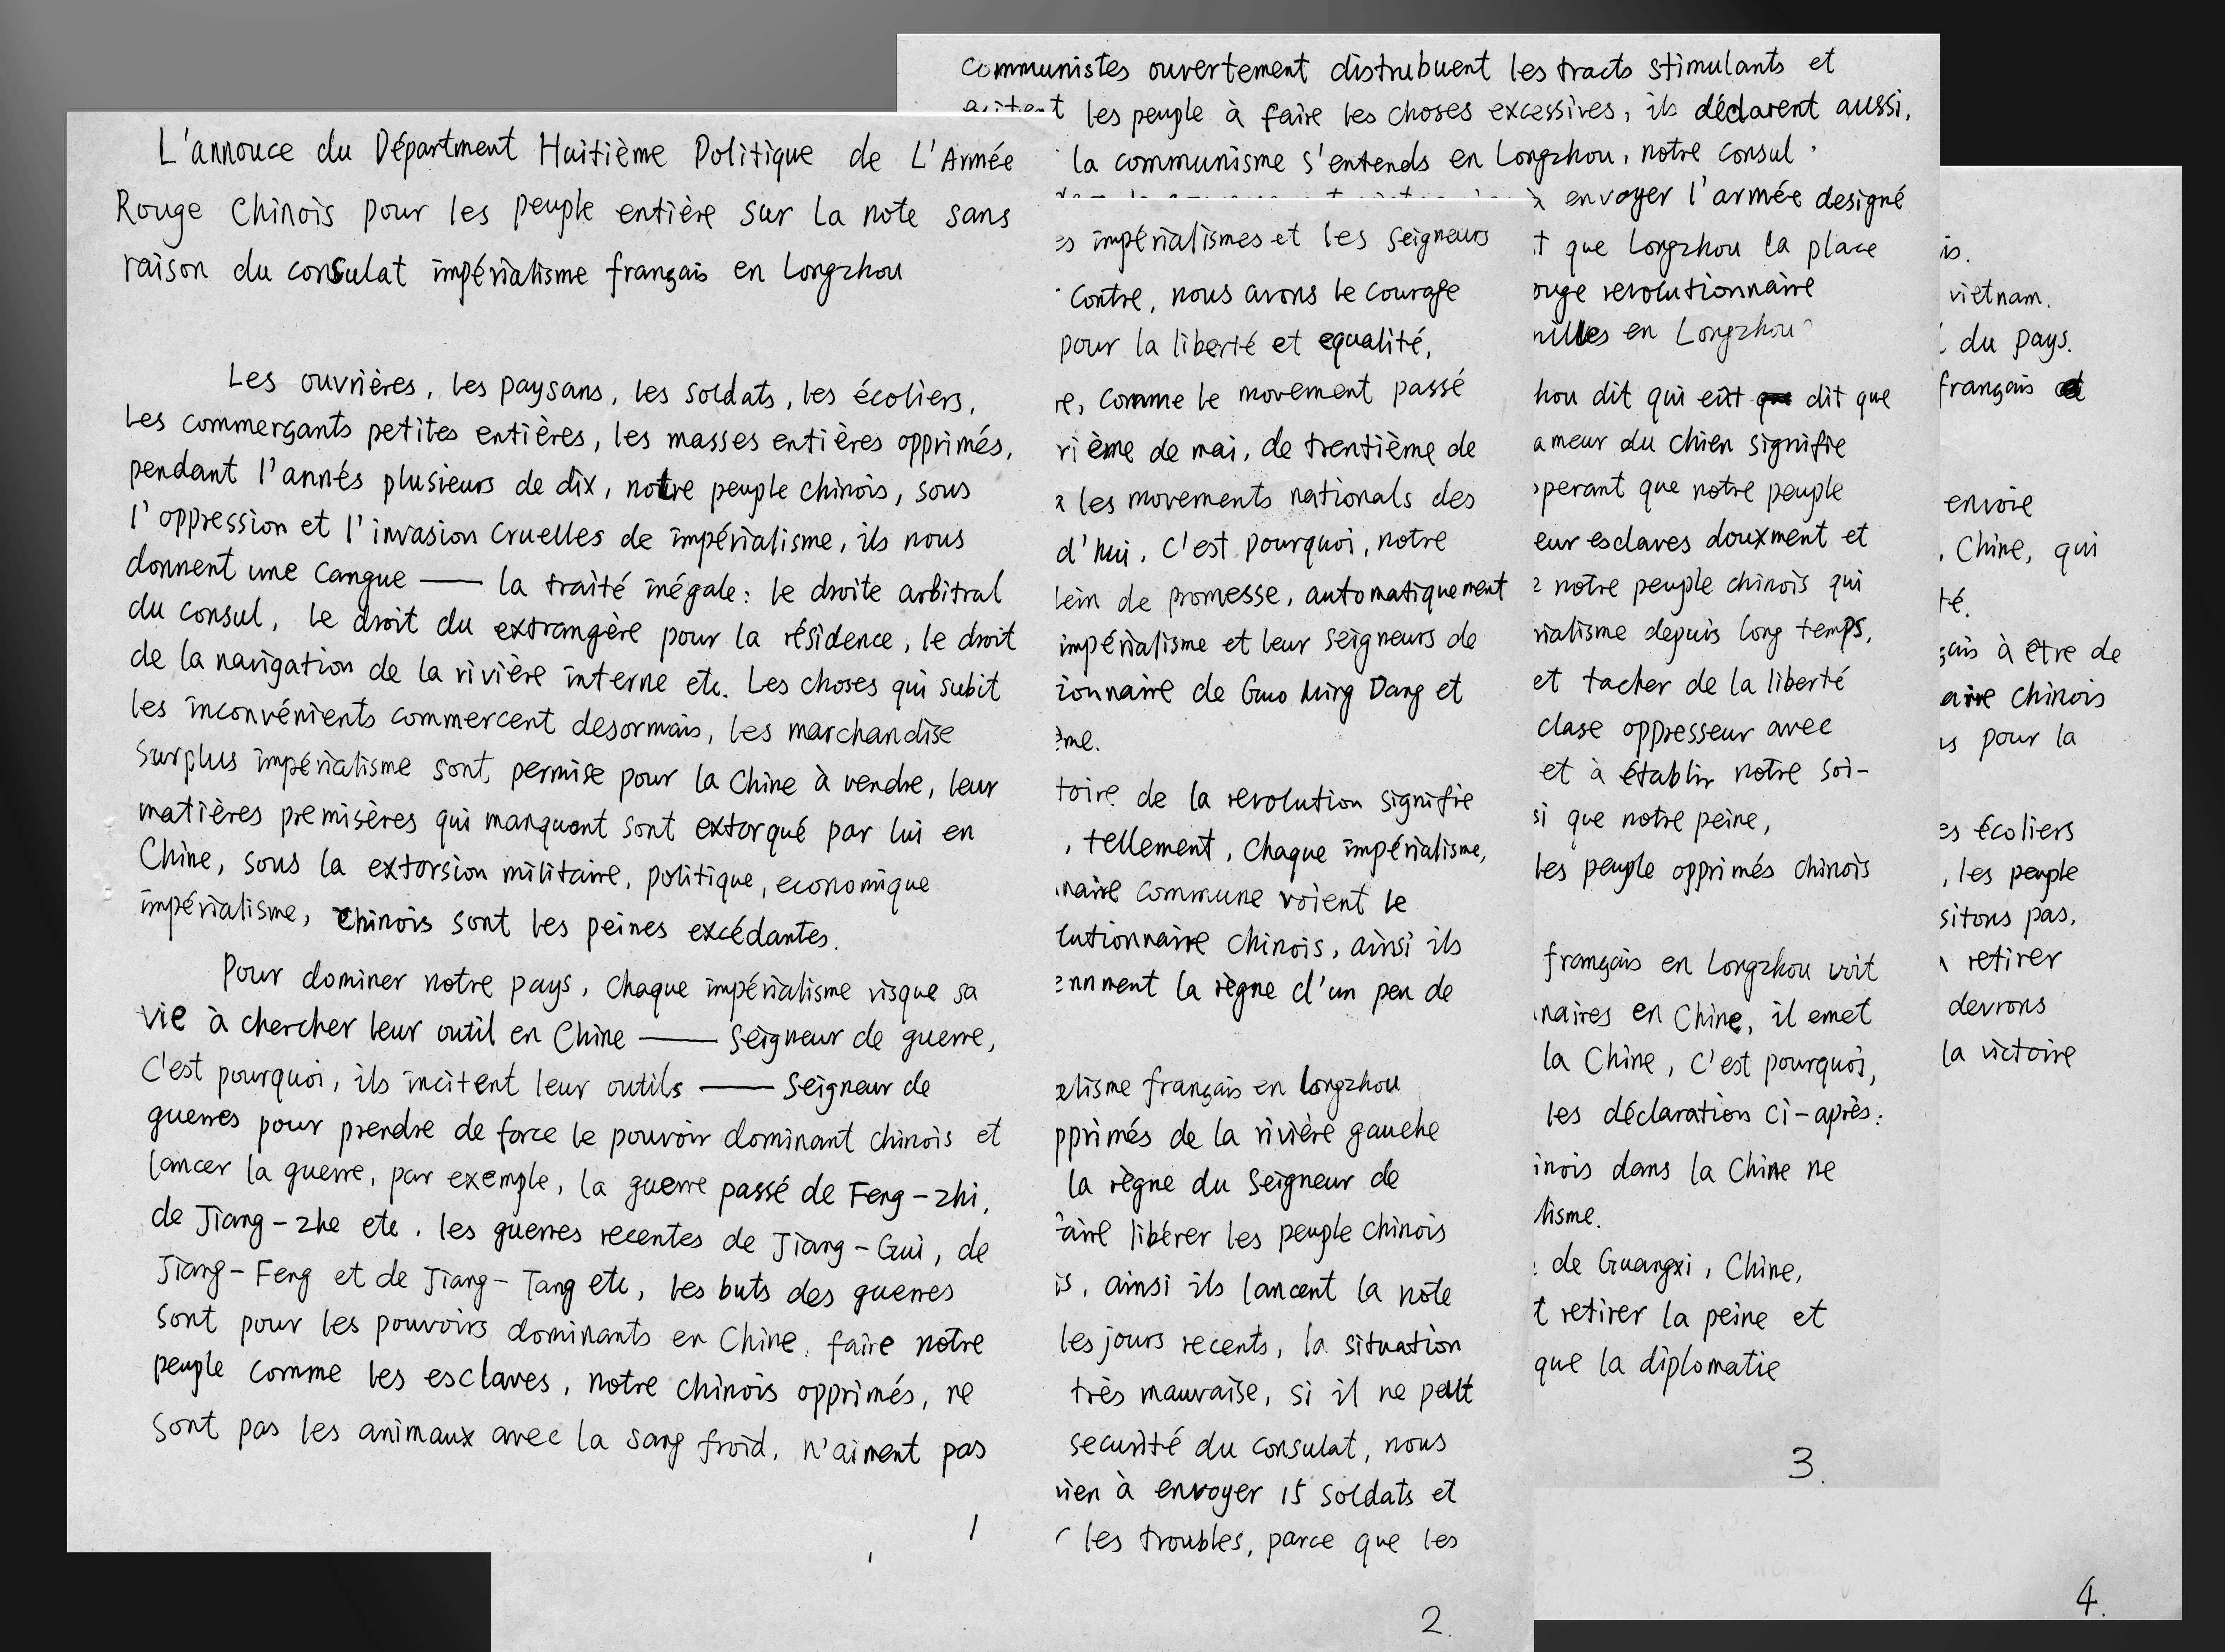 L'annouce du Départment Huitième Politique de L'Armée
Rouge Chinois pour les peuple entière sur la note sans
raison du consulat impérialisme français en Longzhou
Les ouvrières, les paysans, les soldats, les écoliers,
les commerçants petites entières, les masses entières opprimés,
pendant l'annés plusieurs de dix, notre peuple chinois, sous
l'oppression et l'invasion cruelles de impérialisme, ils nous
donnent une cangue —— la traité inégale: le droite arbitral
du consul, le droit du extrangère pour la résidence, le droit
de la navigation de la rivière interne etc. Les choses qui subit
les inconvénients commercent desormais, les marchandise
surplus impérialisme sont permise pour la Chine à vendre, leur
matières premisères qui manquent sont extorqué par lui en
Chine, sous la extorsion militaire, politique, economique
impérialisme, chinois sont les peines excédantes.
Pour dominer notre pays, chaque impérialisme risque sa
vie à chercher leur outil en Chine —— Seigneur de guerre,
C'est pourquoi, ils incitent leur outils —— Seigneur de
guerres pour prendre de force le pouvoir dominant chinois et
lancer la guerre, par exemple, la guerre passé de Feng-zhi,
de Jiang-zhe etc. les guerres recentes de Jiang-Gui, de
Jiang-Feng et de Jiang-Tang etc, les buts des guerres
sont pour les pouvoirs dominants en Chine, faire notre
peuple comme les esclaves, notre chinois opprimés, ne
sont pas les animaux avec la sang froid, n'aiment pas
1
impérialismes et les seigneurs
contre, nous avons le courage
pour la liberté et equalité,
comme le movement passé
de mai, de trentième de
les movements nationals des
d'hui, C'est pourquoi, notre
de promesse, automatiquement
impérialisme et leur seigneurs de
de Guo Ming Dang et
de la revolution signifie
, tellement, chaque impérialisme,
commune voient le
chinois, ainsi ils
la règne d'un peu de
français en Longzhou
de la rivière gauche
la règne du Seigneur de
libérer les peuple chinois
, ainsi ils lancent la note
les jours recents, la situation
très mauvaise, si il ne peut
securité du consulat, nous
à envoyer 15 soldats et
les troubles, parce que les
2.
communistes ouvertement distrubuent les tracts stimulants et
les peuple à faire les choses excessives, ils déclarent aussi,
la communisme s'entends en Longzhou, notre consul
envoyer l'armée designé
que Longzhou la place
revolutionnaire
en Longzhou
dit qui eût dit que
du chien signifie
que notre peuple
esclaves douxment et
notre peuple chinois qui
depuis long temps,
et tacher de la liberté
clase oppresseur avec
et à établir notre soi-
que notre peine,
les peuple opprimés chinois
français en Longzhou voit
en Chine, il emet
la Chine, C'est pourquoi,
les déclaration ci-après:
dans la Chine ne
de Guangxi, Chine,
retirer la peine et
que la diplomatie
3.
vietnam.
du pays.
français
envoie
, Chine, qui
à être de
chinois
pour la
écoliers
, les peuple
pas,
retirer
devrons
la victoire
4.